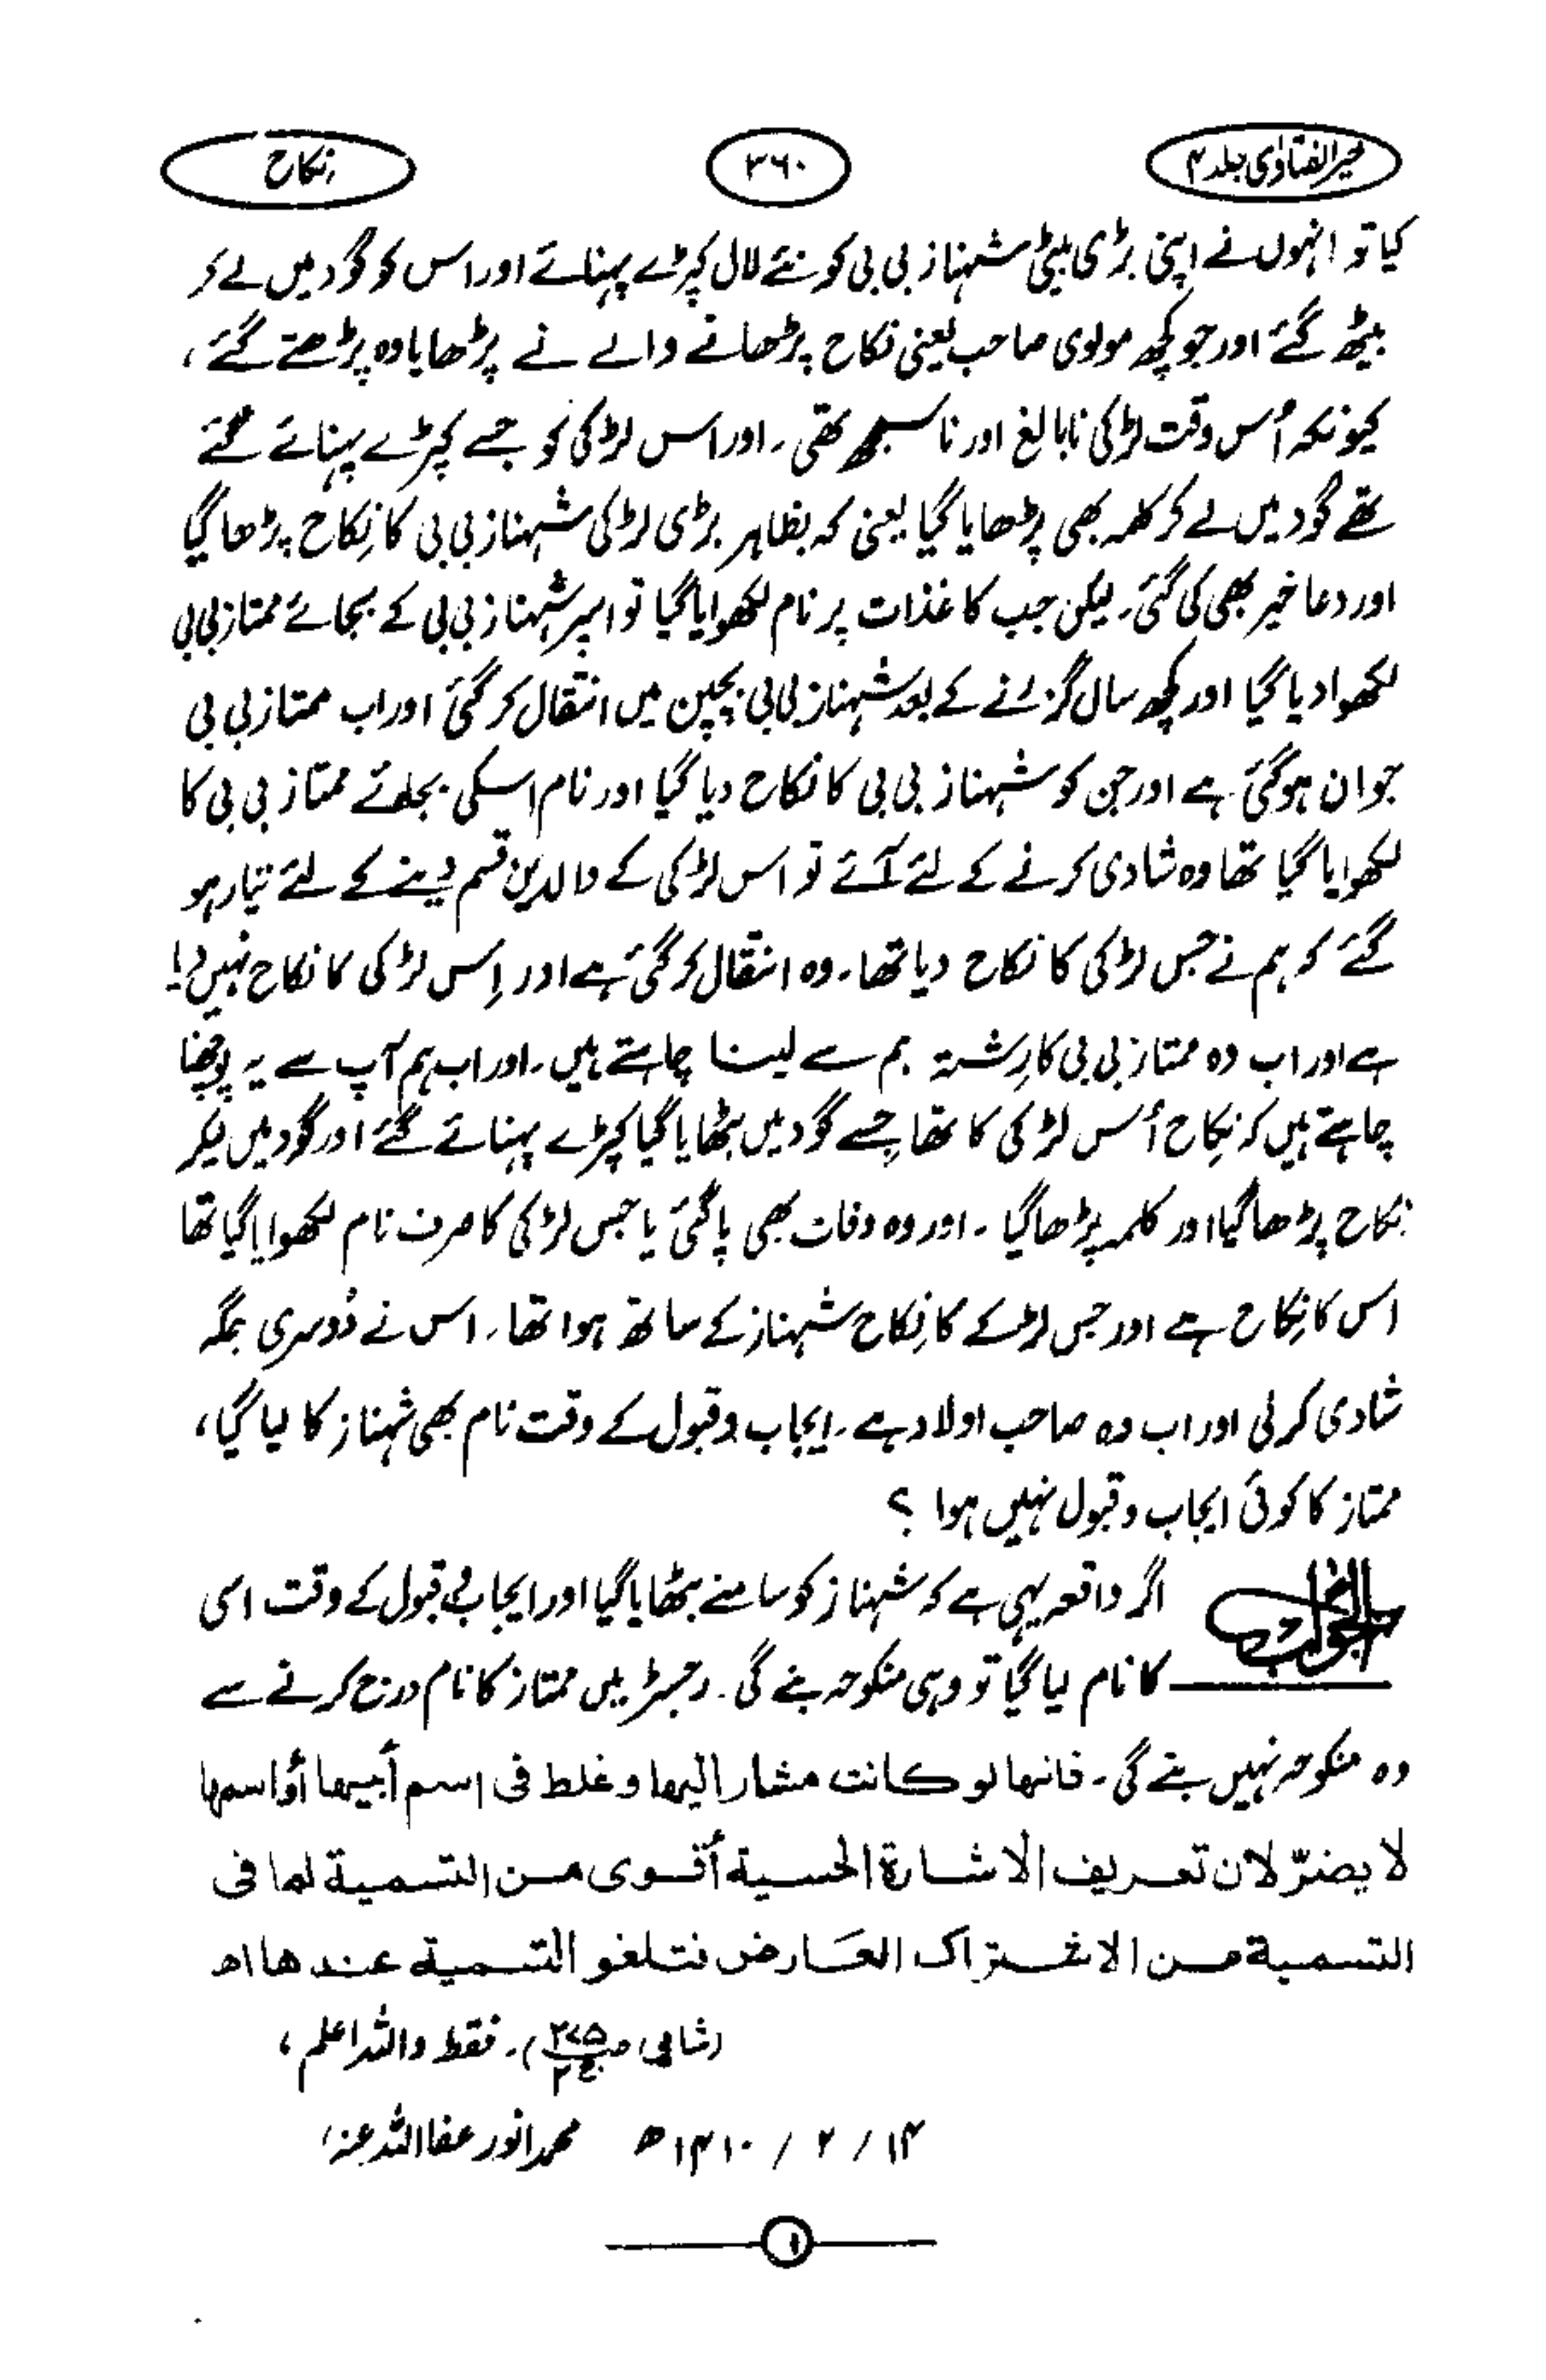 خیر الفتاوٰی جلد ۴
۳۶۰
نکاح
کیا تو انہوں نے اپنی بڑی بیٹی شہناز بی بی کو نئے لال کپڑے پہنائے اور اس کو گود میں لے کر
بیٹھ گئے اور جو کچھ مولوی صاحب یعنی نکاح پڑھانے والے نے پڑھایا وہ پڑھتے گئے،
کیونکہ اُس وقت لڑکی نابالغ اور ناسمجھ تھی۔ اور اس لڑکی کو جسے کپڑے پہنائے گئے
تھے گود میں لے کر کلمہ بھی پڑھایا گیا یعنی کہ بظاہر بڑی لڑکی شہناز بی بی کا نِکاح پڑھا گیا
اور دعا خیر بھی کی گئی۔ لیکن جب کاغذات پر نام لکھوایا گیا تو اسپر شہناز بی بی کے بجائے ممتاز بی بی
لکھوا دیا گیا اور کچھ سال گزرنے کے بعد شہناز بی بی بچپن میں انتقال کر گئی اور اب ممتاز بی بی
جوان ہو گئی ہے اور جن کو شہناز بی بی کا نکاح دیا گیا اور نام اسکی بجائے ممتاز بی بی کا
لکھوایا گیا تھا وہ شادی کرنے کے لئے آئے تو اس لڑکی کے والدین قسم دینے کے لئے تیار ہو
گئے کہ ہم نے جس لڑکی کا نکاح دیا تھا۔ وہ انتقال کر گئی ہے اور اِس لڑکی کا نکاح نہیں دیا
ہے اور اب وہ ممتاز بی بی کا رِشتہ ہم سے لینا چاہتے ہیں۔ اور اب ہم آپ سے یہ پوچھنا
چاہتے ہیں کہ نِکاح اُس لڑکی کا تھا جِسے گود میں بٹھایا گیا کپڑے پہنائے گئے اور گود میں لیکر
نکاح پڑھا گیا اور کلمہ پڑھا گیا۔ اور وہ وفات بھی پا گئی یا جس لڑکی کا صرف نام لکھوایا گیا تھا
اس کا نِکاح ہے اور جس لڑکے کا نِکاح شہناز کے ساتھ ہوا تھا۔ اس نے دُوسری جگہ
شادی کر لی اور اب وہ صاحب اولاد ہے۔ ایجاب و قبول کے وقت نام بھی شہناز کا لیا گیا،
ممتاز کا کوئی ایجاب و قبول نہیں ہوا ؟
الجواب اگر واقعہ یہی ہے کہ شہناز کو سامنے بٹھایا گیا اور ایجاب و قبول کے وقت اسی
کا نام لیا گیا تو وہی منکوحہ بنے گی۔ رجسٹر میں ممتاز کا نام درج کرنے سے
وہ منکوحہ نہیں بنے گی۔ فانها لو كانت مشارا اليها و غلط فى اسم أبيها أو اسمها
لا يضرّ لان تعريف الاشارة الحسية أقوى من التسمية لما فى
التسمية من الاشتراك العَارض فتلغو التسمية عندها اھ
(شامی ص۲۷۵ ج۲)۔ فقط واللہ اعلم،
۱۴ / ۲ / ۱۴۱۰ھ محمد انور عفا اللہ عنہ،